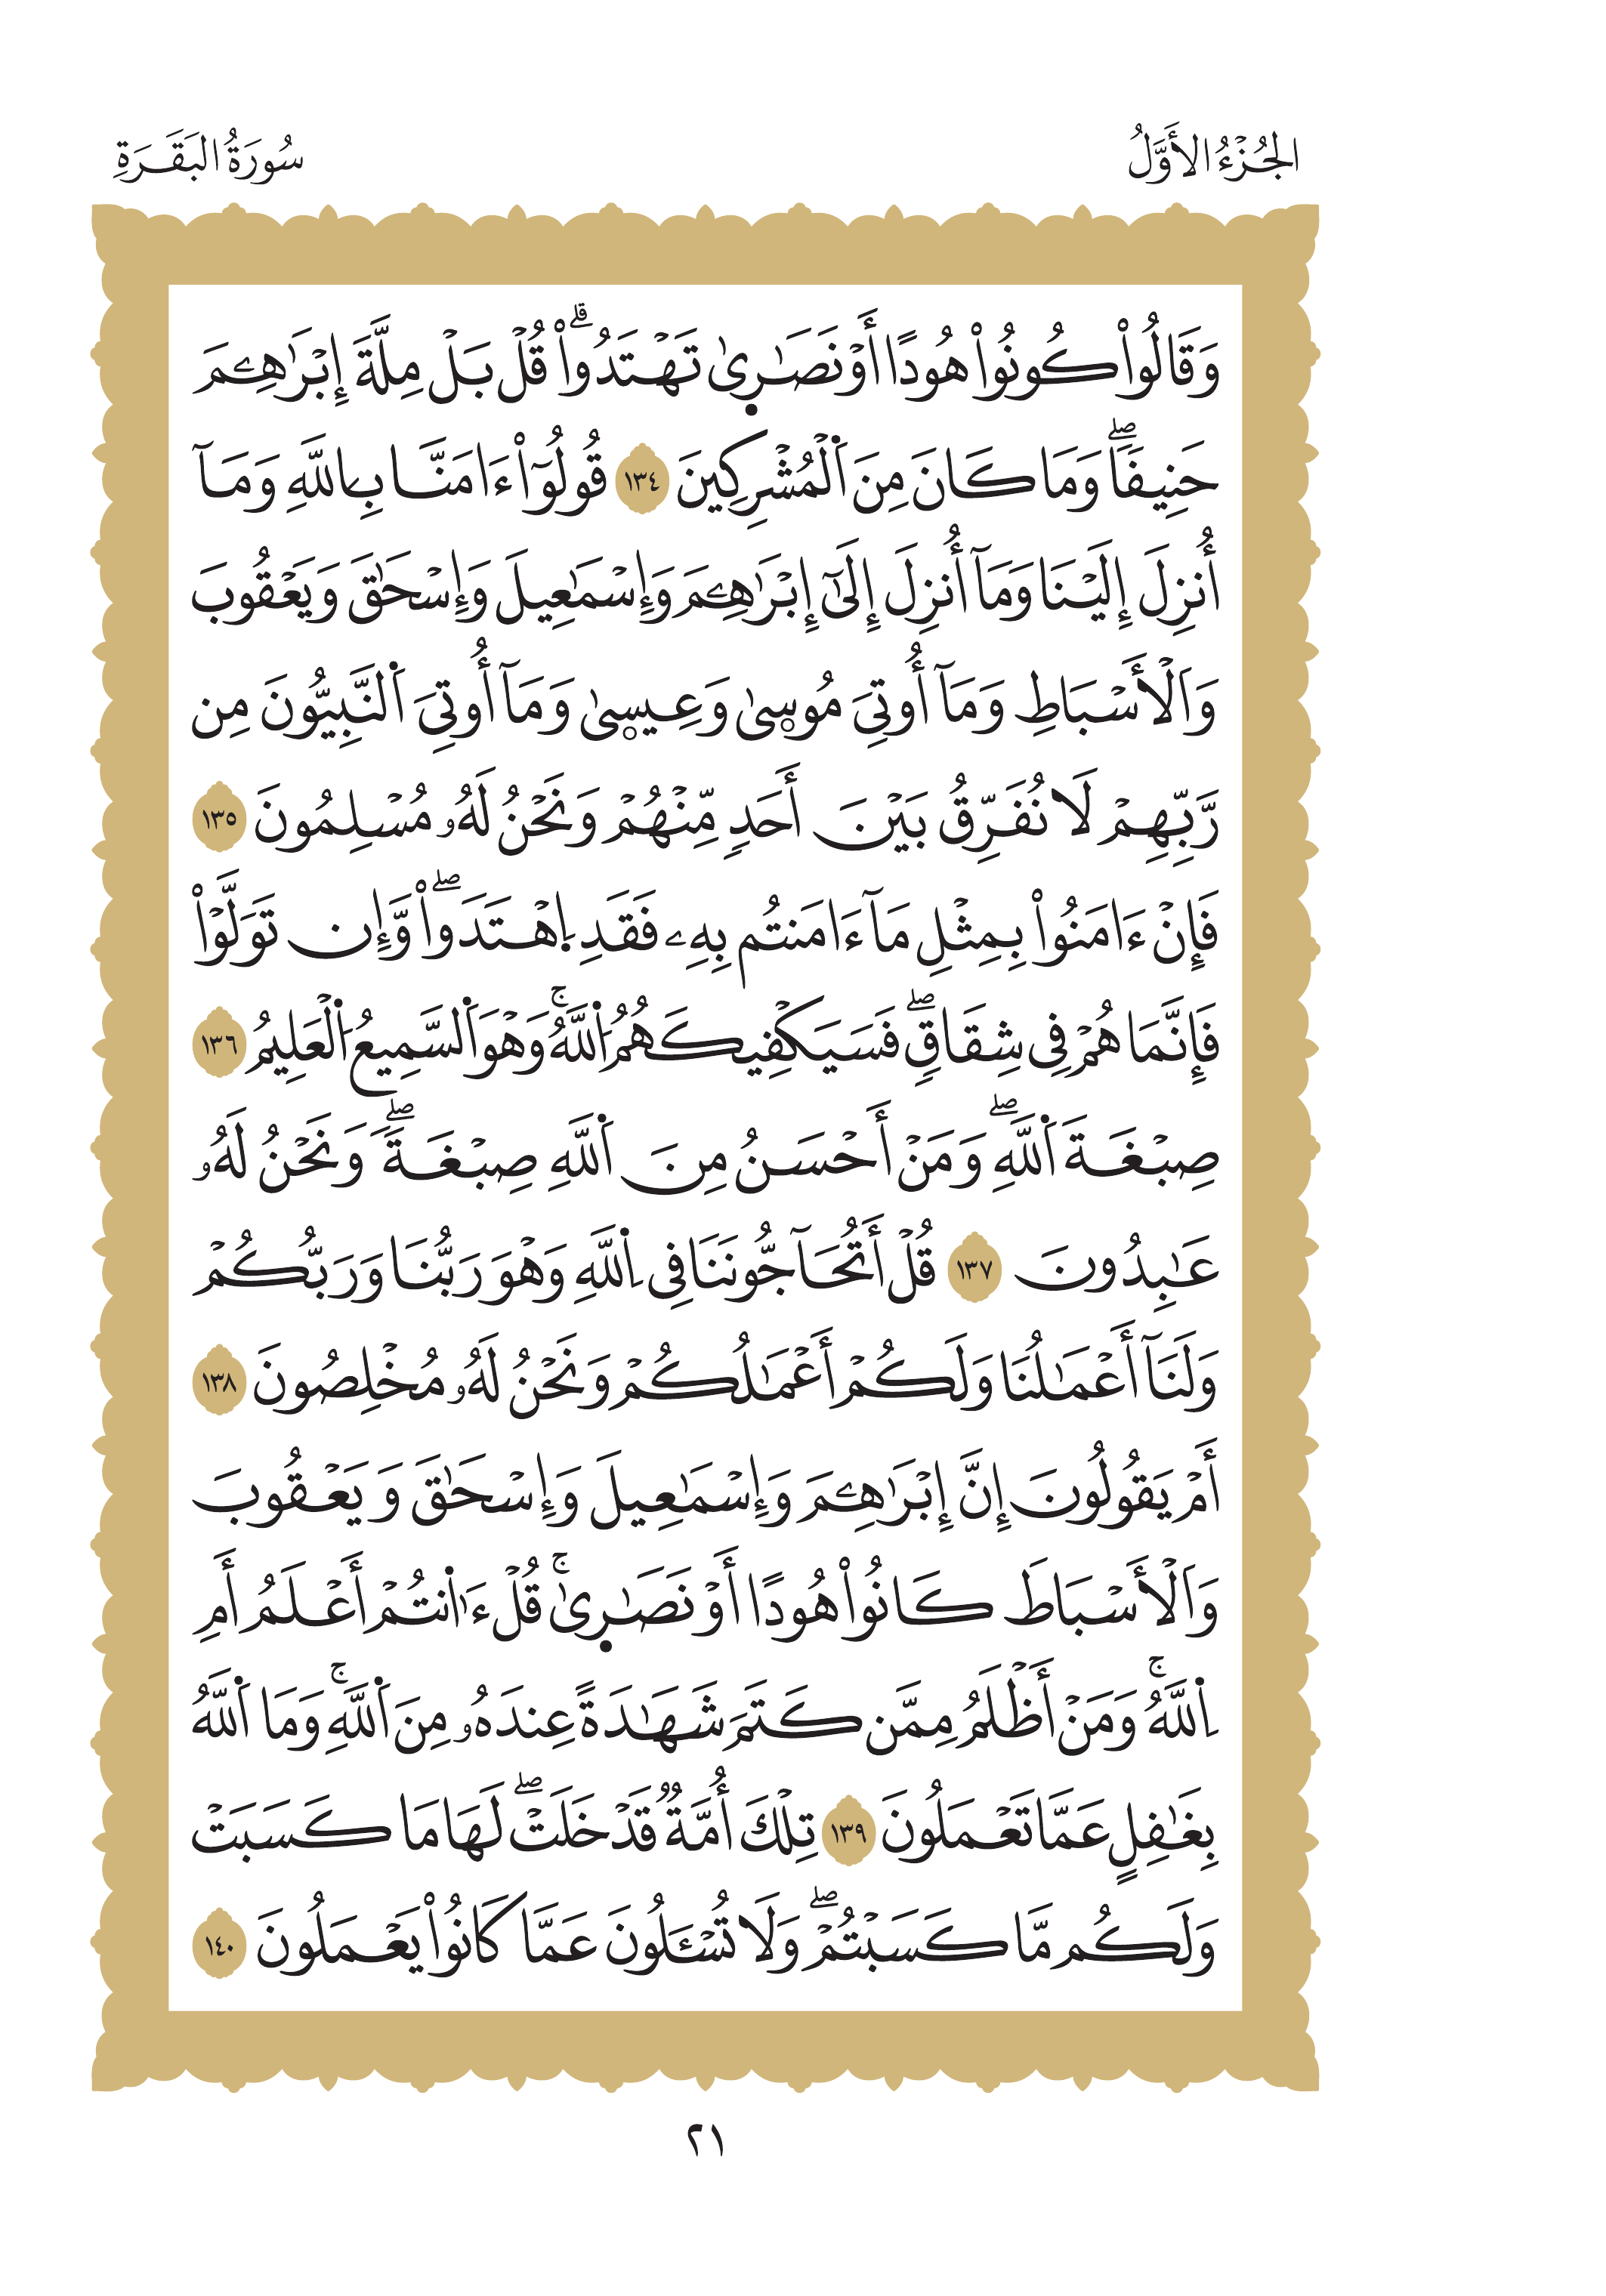 الجُزْءُ الأَوَّلُ
سُورَةُ البَقَرَةِ
وَقَالُواْ كُونُواْ هُودًا أَوْ نَصَٰرِىٰ تَهْتَدُواْۗ قُلْ بَلْ مِلَّةَ إِبْرَٰهِـۧمَ
حَنِيفًاۖ وَمَا كَانَ مِنَ اَ۬لْمُشْرِكِينَ ١٣٤ قُولُوٓاْ ءَامَنَّا بِاللَّهِ وَمَآ
أُنزِلَ إِلَيْنَا وَمَآ أُنزِلَ إِلَىٰٓ إِبْرَٰهِـۧمَ وَإِسْمَٰعِيلَ وَإِسْحَٰقَ وَيَعْقُوبَ
وَاَلْأَسْبَاطِ وَمَآ أُوتِىَ مُوسۭىٰ وَعِيسۭىٰ وَمَآ أُوتِىَ اَ۬لنَّبِيُّونَ مِن
رَّبِّهِمْ لَا نُفَرِّقُ بَيْنَ أَحَدٍ مِّنْهُمْ وَنَحْنُ لَهُۥ مُسْلِمُونَ ١٣٥
فَإِنْ ءَامَنُواْ بِمِثْلِ مَآ ءَامَنتُم بِهِۦ فَقَدِ اِ۪هْتَدَواْۖ وَّإِن تَوَلَّوْاْ
فَإِنَّمَا هُمْ فِى شِقَاقٍۖ فَسَيَكْفِيكَهُمُ اُ۬للَّهُۚ وَهْوَ اَ۬لسَّمِيعُ اُ۬لْعَلِيمُ ١٣٦
صِبْغَةَ اَ۬للَّهِۖ وَمَنْ أَحْسَنُ مِنَ اَ۬للَّهِ صِبْغَةًۖ وَنَحْنُ لَهُۥ
عَٰبِدُونَ ١٣٧ قُلْ أَتُحَآجُّونَنَا فِى اِ۬للَّهِ وَهْوَ رَبُّنَا وَرَبُّكُمْ
وَلَنَآ أَعْمَٰلُنَا وَلَكُمْ أَعْمَٰلُكُمْ وَنَحْنُ لَهُۥ مُخْلِصُونَ ١٣٨
أَمْ يَقُولُونَ إِنَّ إِبْرَٰهِـۧمَ وَإِسْمَٰعِيلَ وَإِسْحَٰقَ وَيَعْقُوبَ
وَاَلْأَسْبَاطَ كَانُواْ هُودًا أَوْ نَصَٰرِىٰۚ قُلْ ءَا۬نتُمْ أَعْلَمُ أَمِ
اِ۬للَّهُۚ وَمَنْ أَظْلَمُ مِمَّن كَتَمَ شَهَٰدَةً عِندَهُۥ مِنَ اَ۬للَّهِۚ وَمَا اَ۬للَّهُ
بِغَٰفِلٍ عَمَّا تَعْمَلُونَ ١٣٩ تِلْكَ أُمَّةٌ قَدْ خَلَتْۖ لَهَا مَا كَسَبَتْ
وَلَكُم مَّا كَسَبْتُمْۖ وَلَا تُسْـَٔلُونَ عَمَّا كَانُواْ يَعْمَلُونَ ١٤٠
٢١